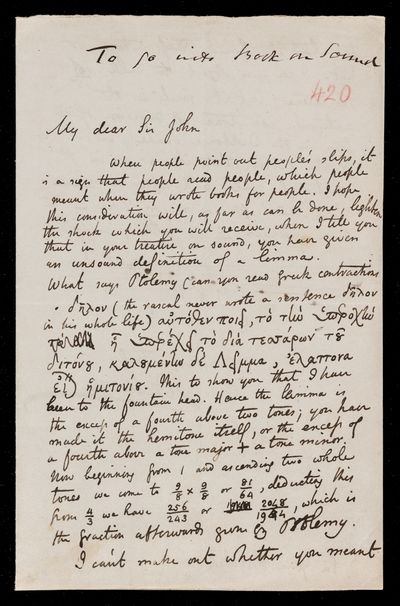 To go into Book on Sound
420
My dear Sir John
When people point out people's slips, it
is a sign that people read people, which people
meant when they wrote books for people. I hope
this consideration will, as far as can be done, lighten
the shock which you will receive, when I tell you
that in your treatise on sound, you have given
an unsound definition of a limma.
What says Ptolemy (can you read Greek contractions
δηλον (the rascal never wrote a sentence δηλον
in his whole life)
ἡ τὸ διὰ τεσσάρων
διτόνου, καλουμένων δὲ Λεῖμμα, ἐλάττονα
ἡμιτονίου. This to show you that I have
been to the fountain head. Hence the limma is
the excess of a fourth above two tones; you have
made it the hemitone itself, or the excess of
a fourth above a tone major + a tone minor.
Now beginning from 1 and ascending two whole
tones we come to 9/8 × 9/8 or 81/64, deducting this
from 4/3 we have 256/243 or 2048/1944, which is
the fraction afterwards given by Ptolemy.
I can't make out whether you meant